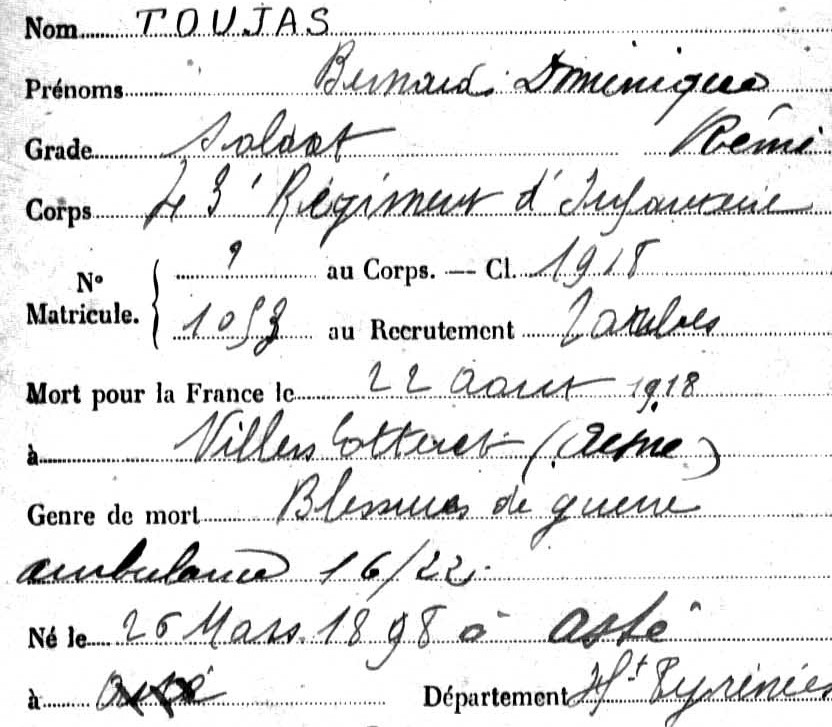 Nom TOUJAS
Prénoms Bernard Dominique
Grade Soldat Rémi
Corps 43e Régiment d'Infanterie
N° Matricule. { ? au Corps. — Cl. 1918
1053 au Recrutement Tarbes
Mort pour la France le 22 aout 1918
à Villers Cotteret (Aisne)
Genre de mort Blessures de guerre
ambulance 16/22.
Né le 26 Mars 1898 à Asté
à Département Htes Pyrénées